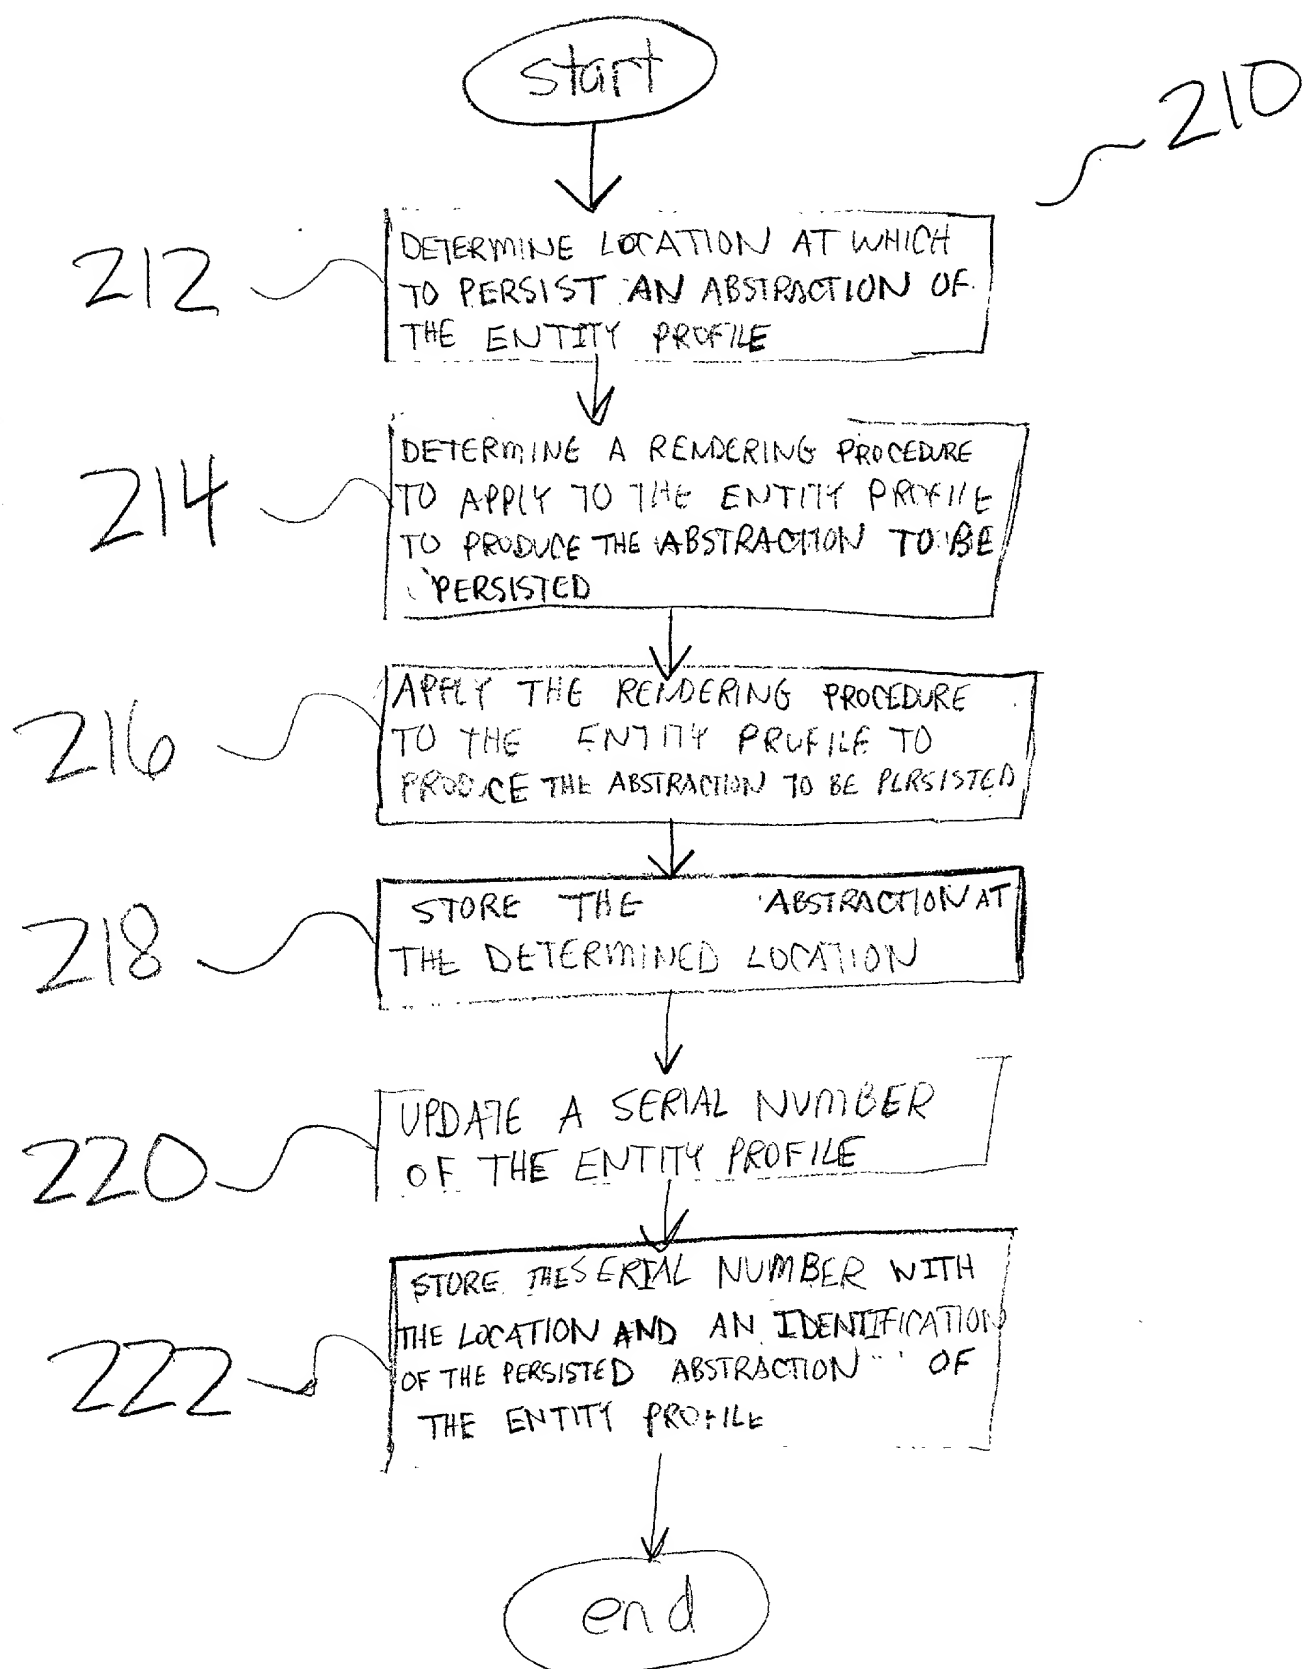 start
210
212
DETERMINE LOCATION AT WHICH
TO PERSIST AN ABSTRACTION OF
THE ENTITY PROFILE
214
DETERMINE A RENDERING PROCEDURE
TO APPLY TO THE ENTITY PROFILE
TO PRODUCE THE ABSTRACTION TO BE
PERSISTED
216
APPLY THE RENDERING PROCEDURE
TO THE ENTITY PROFILE TO
PRODUCE THE ABSTRACTION TO BE PERSISTED
218
STORE THE ABSTRACTION AT
THE DETERMINED LOCATION
220
UPDATE A SERIAL NUMBER
OF THE ENTITY PROFILE
222
STORE THE SERIAL NUMBER WITH
THE LOCATION AND AN IDENTIFICATION
OF THE PERSISTED ABSTRACTION OF
THE ENTITY PROFILE
end